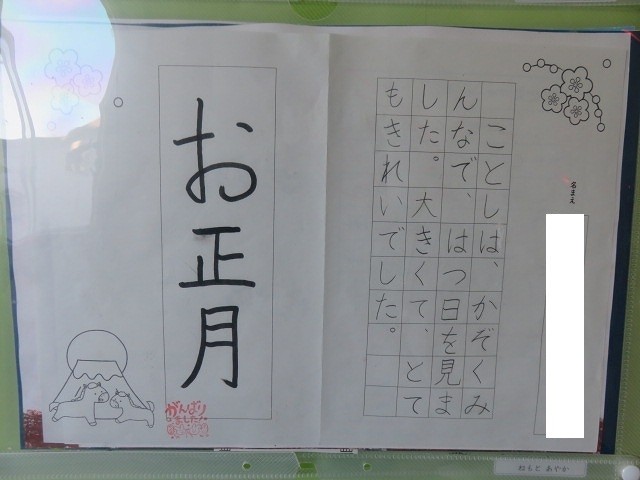 名まえ
ことしは、かぞくみ
んなで、はつ日を見ま
した。大きくて、とて
もきれいでした。
お正月
がんばり
ました
おもと あやか